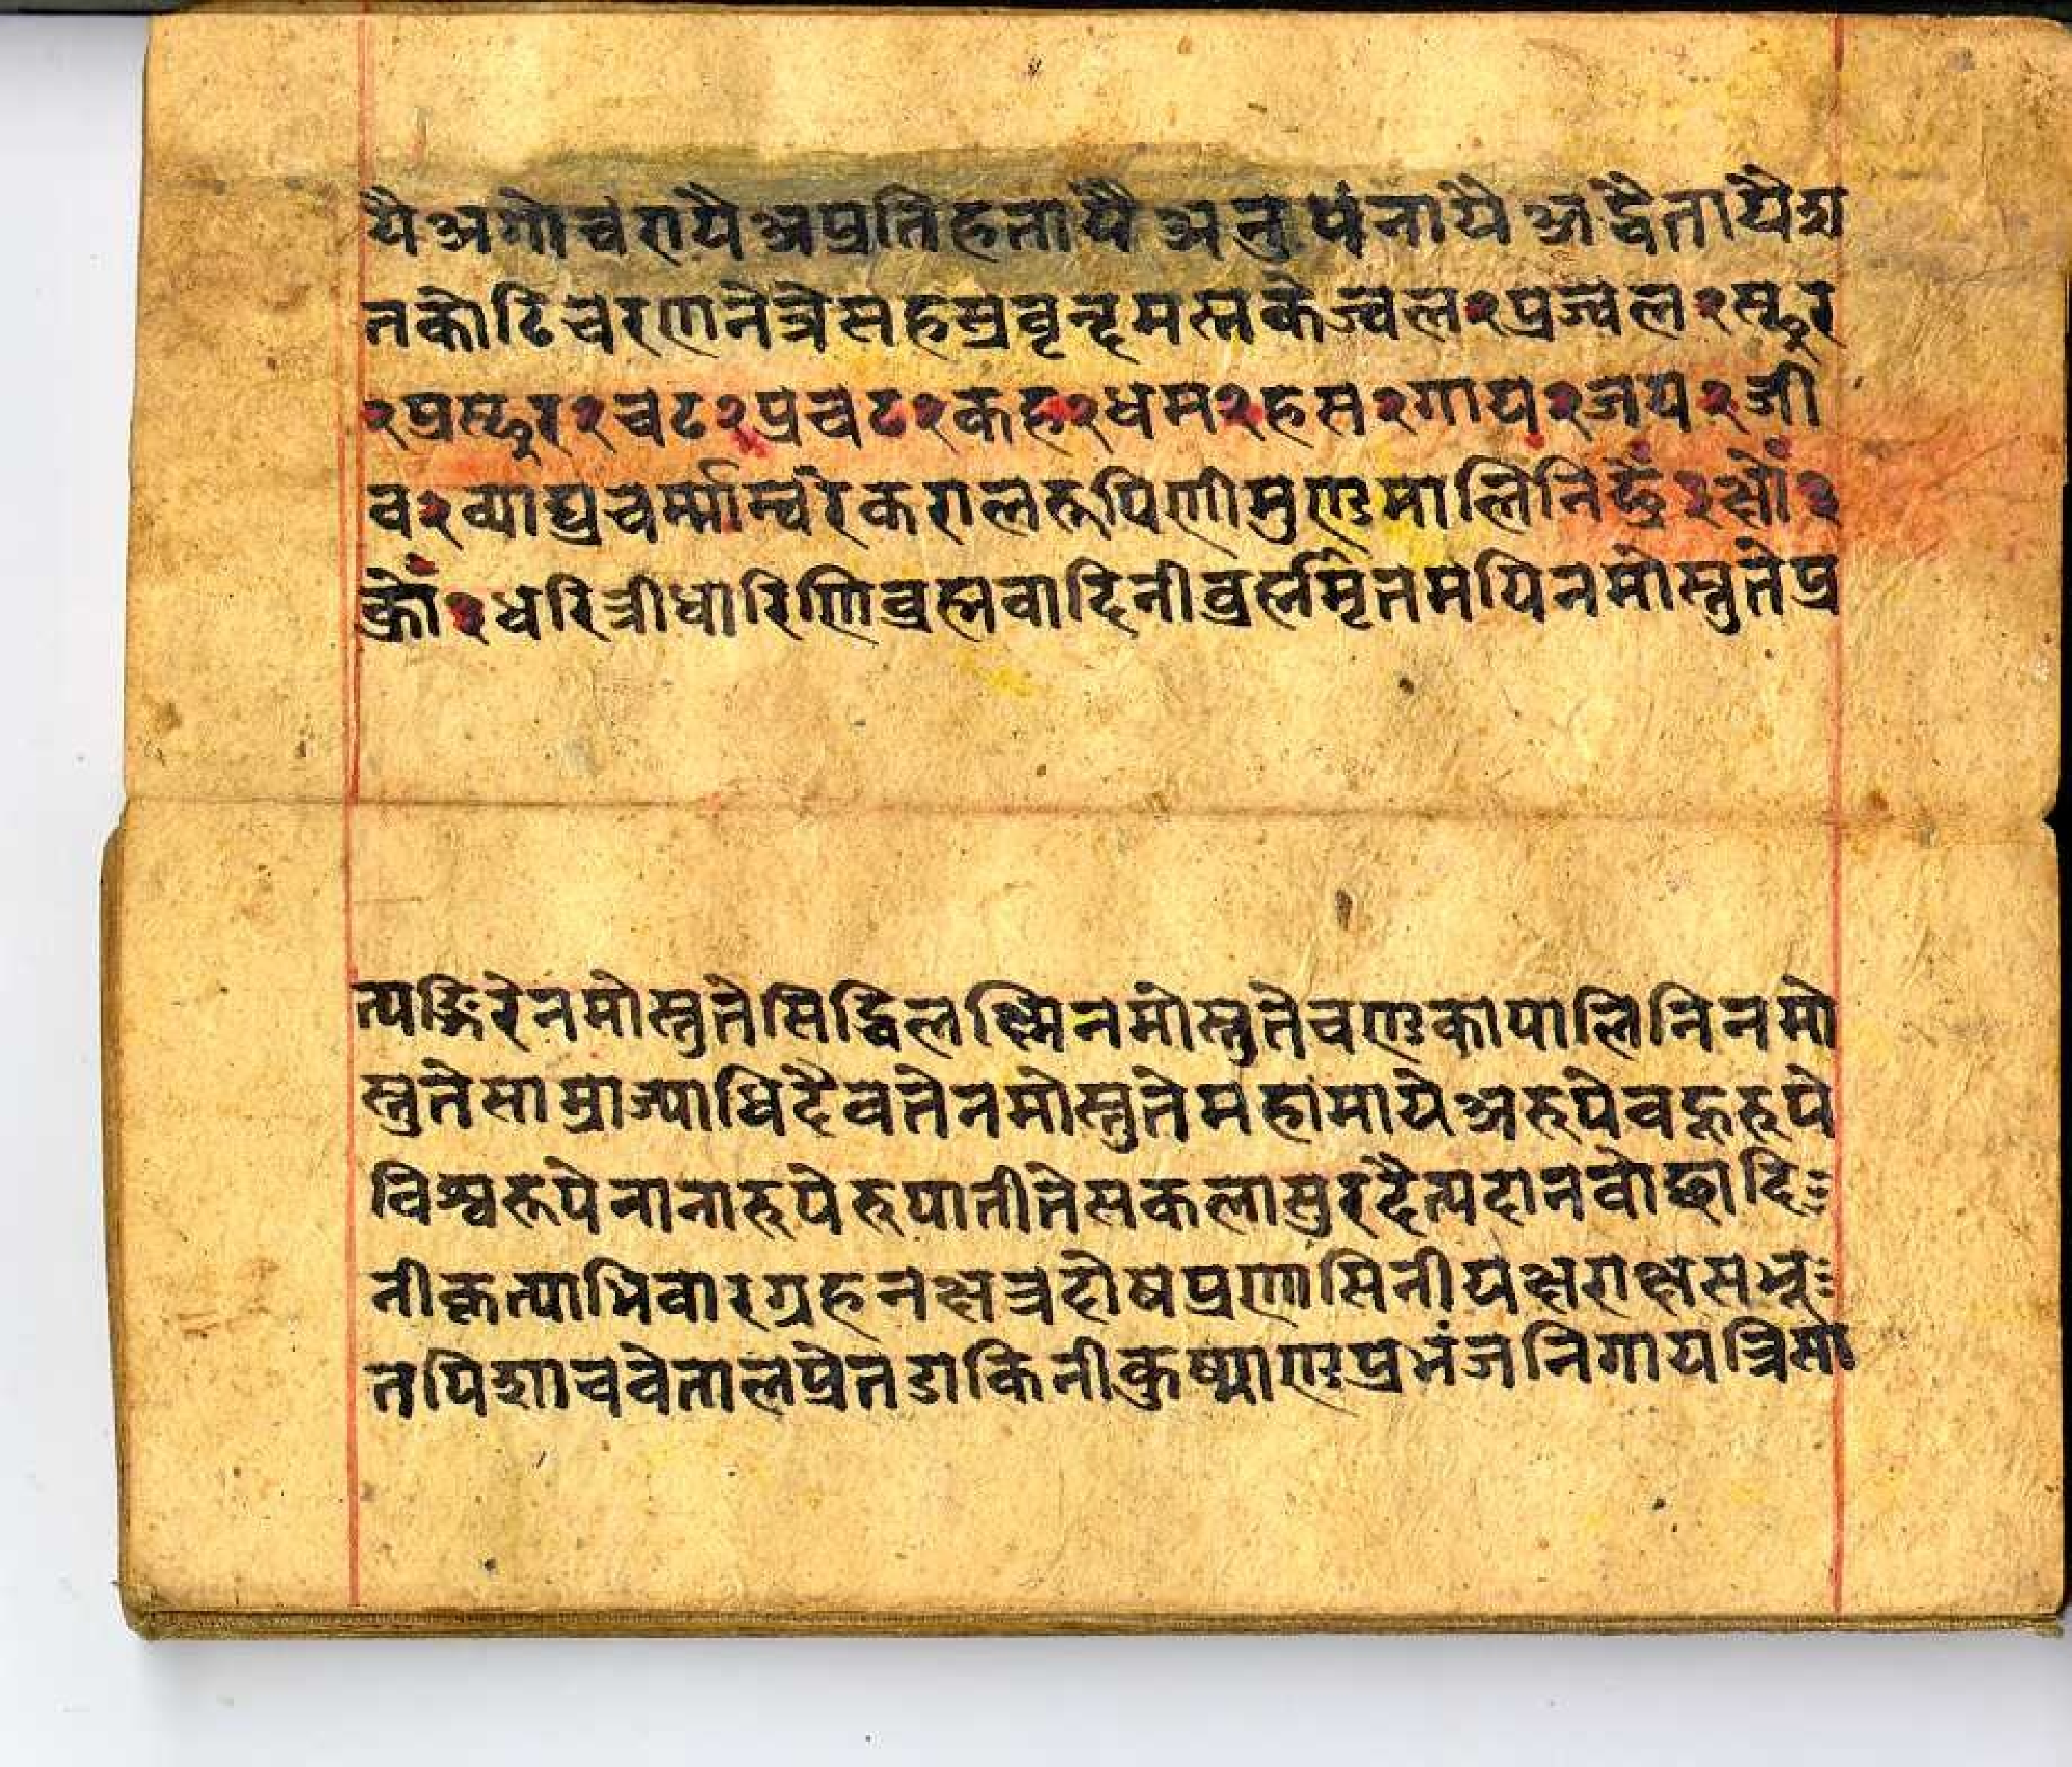 यै अगोचरायै अप्रतिहतायै अनुपंनायै अद्वैतायै श
तकोटिचरणनेत्रे सहस्रवृन्दमस्तके ज्वल २ प्रज्वल २ स्फुर
२ प्रस्फुर २ चट २ प्रचट २ कह २ धम २ हस २ गाय २ जय २ जी
व २ व्याघ्रचर्म्माम्वरे करालरूपिणी मुण्डमालिनि ह्रूँ ३ सौं ३
क्रोँ ३ धरित्रीधारिणि व्रह्मवादिनी व्रह्ममृतमयि नमोस्तुते प्र
त्यङ्गिरे नमोस्तुते सिद्धिलक्ष्मि नमोस्तुते चण्डकापालिनि नमो
स्तुते साम्राज्याधिदैवते नमोस्तुते महामाये अरुपे वहुरुपे
विश्वरूपे नानारुपे रुपातीते सकलासुरदैत्यदानवोच्छादि
नी कृत्याभिचारग्रहनक्षत्रदोषप्रणासिनी यक्षराक्षसभू
तपिशाचवेतालप्रेतडाकिनीकुष्माण्डप्रभंजनि गायत्रि सा